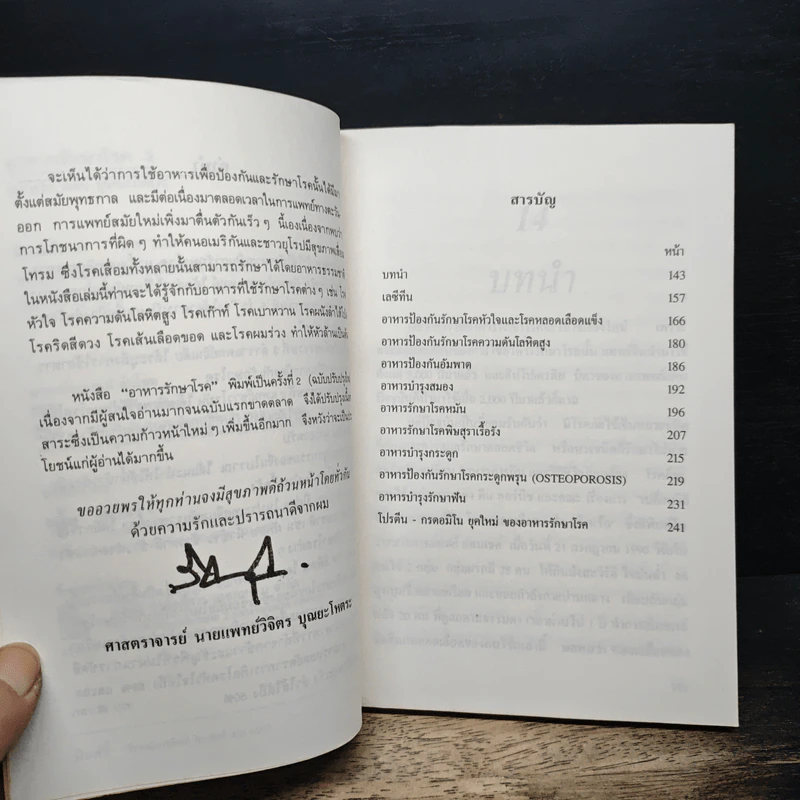 จะเห็นได้ว่าการใช้อาหารเพื่อป้องกันและรักษาโรคนั้นได้มีมา
ตั้งแต่สมัยพุทธกาล และมีต่อเนื่องมาตลอดเวลาในการแพทย์ทางตะวัน
ออก การแพทย์สมัยใหม่เพิ่งมาตื่นตัวกันเร็ว ๆ นี้เองเนื่องจากพบว่า
การโภชนาการที่ผิด ๆ ทำให้คนอเมริกันและชาวยุโรปมีสุขภาพเสื่อม
โทรม ซึ่งโรคเสื่อมทั้งหลายนั้นสามารถรักษาได้โดยอาหารธรรมชาติ
ในหนังสือเล่มนี้ท่านจะได้รู้จักกับอาหารที่ใช้รักษาโรคต่าง ๆ เช่น
หัวใจ โรคความดันโลหิตสูง โรคเก๊าท์ โรคเบาหวาน โรคผนังลำไส้
โรคริดสีดวง โรคเส้นเลือดขอด และโรคผมร่วง ทำให้หัวล้านเป็นต้น
หนังสือ "อาหารรักษาโรค" พิมพ์เป็นครั้งที่ 2 (ฉบับปรับปรุงใหม่)
เนื่องจากมีผู้สนใจอ่านมากจนฉบับแรกขาดตลาด จึงได้ปรับปรุง
สาระซึ่งเป็นความก้าวหน้าใหม่ ๆ เพิ่มขึ้นอีกมาก จึงหวังว่าจะเป็นประ
โยชน์แก่ผู้อ่านได้มากขึ้น
ขออวยพรให้ทุกท่านจงมีสุขภาพดีถ้วนหน้าโดยทั่วกัน
ด้วยความรักและปรารถนาดีจากผม
ศาสตราจารย์ นายแพทย์วิจิตร บุณยะโหตระ
สารบัญ
หน้า
บทนำ 143
เลซีทีน 157
อาหารป้องกันรักษาโรคหัวใจและโรคหลอดเลือดแข็ง 166
อาหารป้องกันรักษาโรคความดันโลหิตสูง 180
อาหารป้องกันอัมพาต 186
อาหารบำรุงสมอง 192
อาหารรักษาโรคหมัน 196
อาหารรักษาโรคพิษสุราเรื้อรัง 207
อาหารบำรุงกระดูก 215
อาหารป้องกันรักษาโรคกระดูกพรุน (OSTEOPOROSIS) 219
อาหารบำรุงรักษาฟัน 231
โปรตีน - กรดอมิโน ยุคใหม่ ของอาหารรักษาโรค 241